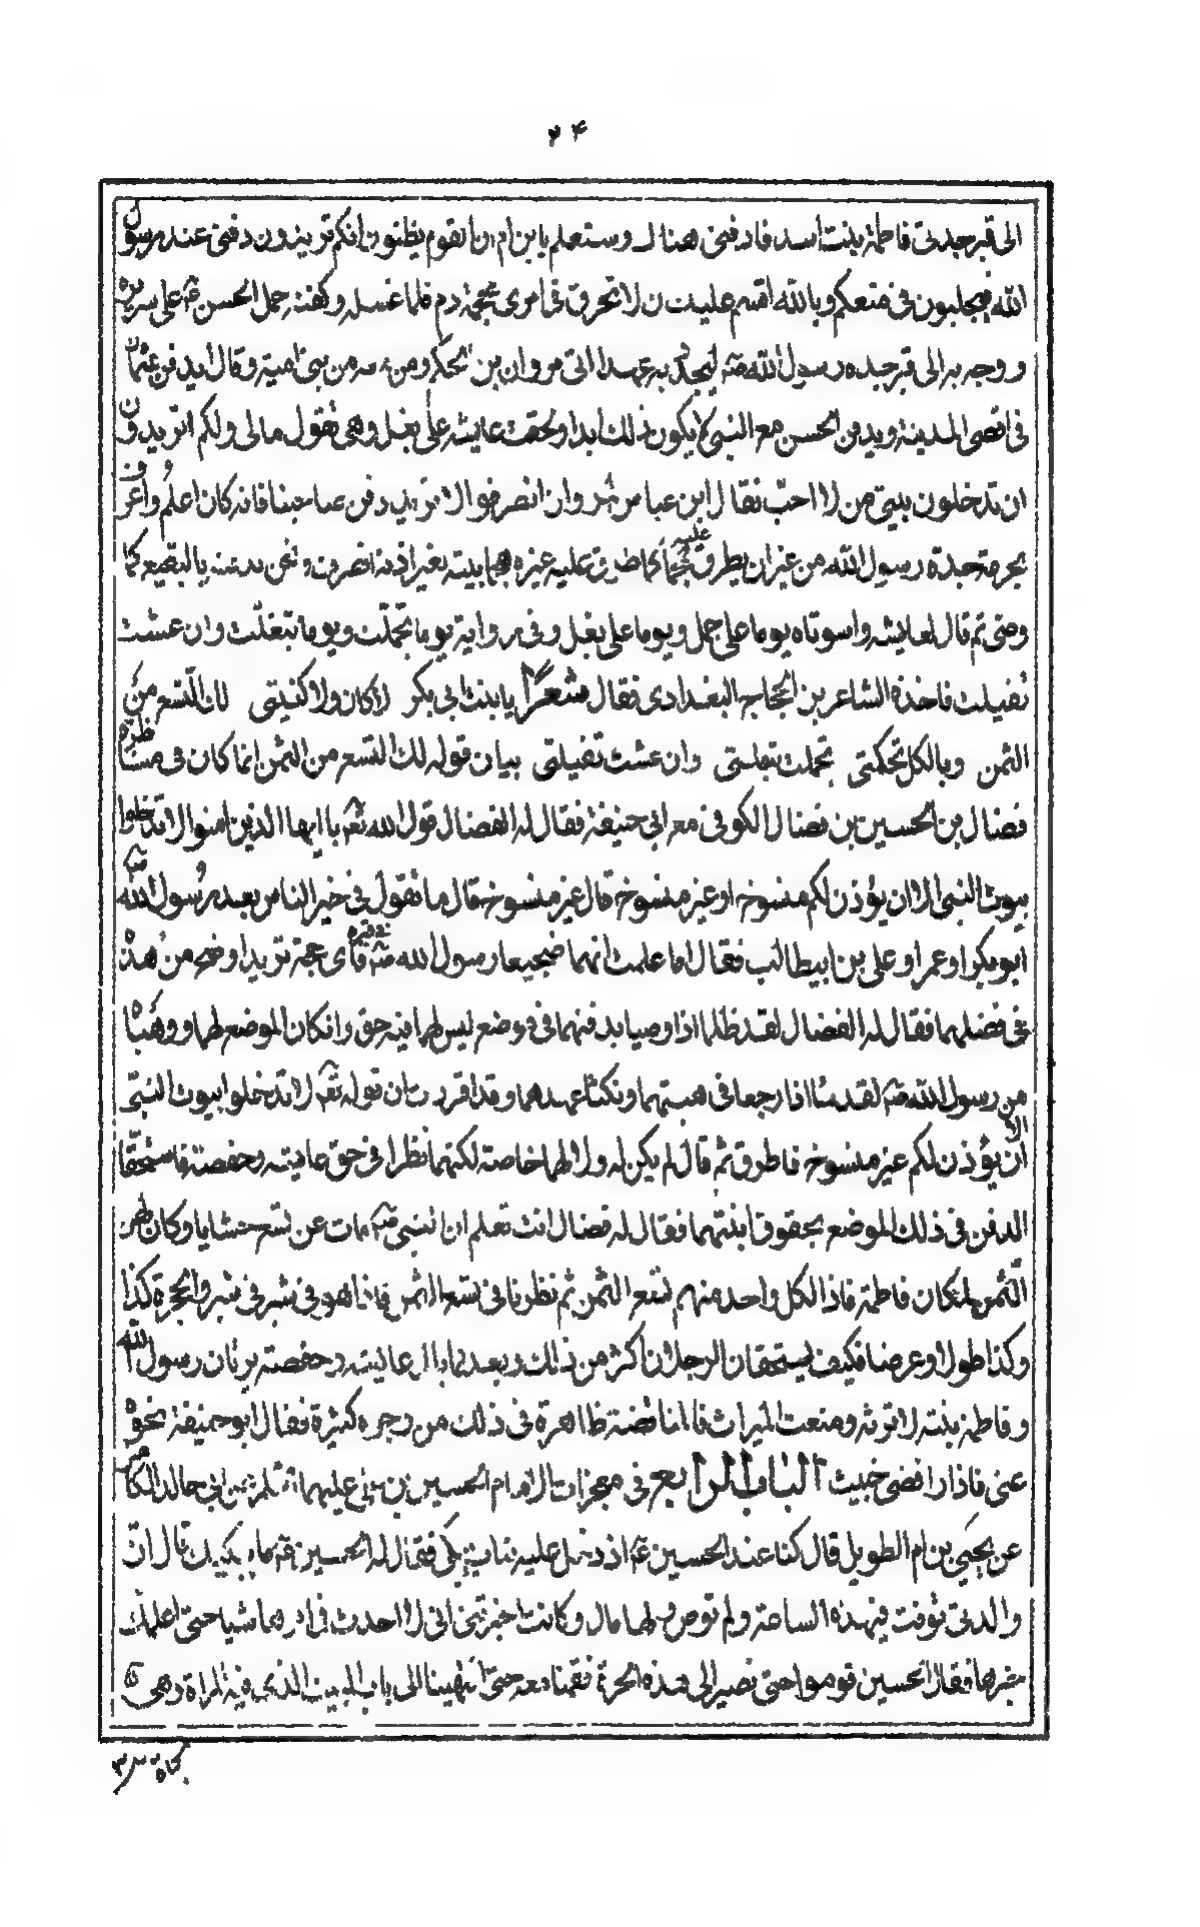 ٢۴
الى قبر جدتى فاطمة بنت اسد فادفنى هناك وستعلم يابن ام ان القوم يظنون انكم تريدون دفنى عند رسول
الله فيجلبون فى منعكم وبالله اقسم عليك ان لا تحرق فى امرى محجمة دم فلما غسله وكفنه حمل الحسن عۤ على سريره
ووجه به الى قبر جده رسول الله صۤ ليجدد به عهدا اتى مروان بن الحكم ومن معه من بنى امية وقال ايدفن عثمان
فى اقصى المدينة ويدفن الحسن مع النبى لا يكون ذلك ابدا ولحقت عايشه على بغل وهى تقول مالى ولكم اتريدون
ان تدخلون بيتى من لا احب فقال ابن عباس لمروان انصرفوا لا نريد دفن صاحبنا فانه كان اعلم واعرف
بحرمة جده رسول الله من غير ان يطرق عليه هجما كما طرق عليه غيره بيته بغير اذنه انصرف ونحن ندفنه بالبقيع كما
وصى ثم قال لعايشه واسوتاه يوما على جمل ويوما على بغل وفى رواية يوما تجملت ويوما تبغلت وان عشت
تفيلت فاخذه الشاعر بن الحجاج البغدادى فقال شعرا يا بنت ابى بكر لا كان ولا كنتى لك التسع من
الثمن وبالكل تحكمتى تجملت تبغلتى وان عشت تفيلتى بيان قوله لك التسع من الثمن انما كان فى مناظرة
فضال بن الحسين بن فضال الكوفى مع ابى حنيفة فقال له الفضال قول الله تعۤ يا ايها الذين امنوا لا تدخلوا
بيوت النبى الا ان يؤذن لكم منسوخة او غير منسوخة قال غير منسوخة قال ما تقول فى خير الناس بعد رسول الله صۤ
ابو بكر او عمر او على بن ابيطالب فقال اما علمت انهما ضجيعا رسول الله صۤ فى قبره فاى حجة تريد اوضح من هذه
فى فضلهما فقال له الفضال لقد ظلما اذ اوصيا بدفنهما فى موضع ليس لهما فيه حق وان كان الموضع لهما ووهباه
من رسول الله صۤ لقد اساءا اذا رجعا فى هبتهما ونكثا عهدهما وقد اقررت ان قوله تعۤ لا تدخلوا بيوت النبى الا
ان يؤذن لكم غير منسوخة فاطرق ثم قال لم يكن له ولا لهما خاصة لكنهما نظرا فى حق عايشه وحفصة فاستحقا
الدفن فى ذلك الموضع بحقوق ابنتيهما فقال له فضال انت تعلم ان النبى صۤ مات عن تسع حشايا وكان لهن
الثمن لمكان فاطمة فاذا لكل واحد منهم تسع الثمن ثم نظرنا فى تسع الثمن فاذا هو فى شبر فى شبر والحجرة كذا
وكذا طولا وعرضا فكيف يستحقان الرجلان اكثر من ذلك وبعد فما بال عايشه وحفصه يرثان رسول الله
وفاطمه بنته لا ترثه ومنعت الميراث فالمناقضة ظاهرة فى ذلك من وجوه كثيرة فقال ابو حنيفة نحوه
عنى فانه رافضى خبيث الباب الرابع فى معجزات الامام الحسين بن على عليهما السلام عن ابى خالد الكا
عن يحيى بن ام الطويل قال كنا عند الحسين عۤ اذ دخل عليه شاب يبكى فقال له الحسين عۤ ما يبكيك قال ان
والدتى توفت فى هذه الساعة ولم توص ولها مال وكانت اخبرتنى انى لا احدث فى امرها شيا حتى اعلمك
خبرها فقال الحسين قوموا حتى نصير الى هذه الحرة فقمنا معه حتى انتهينا الى باب البيت الذى فيه المراة وهى